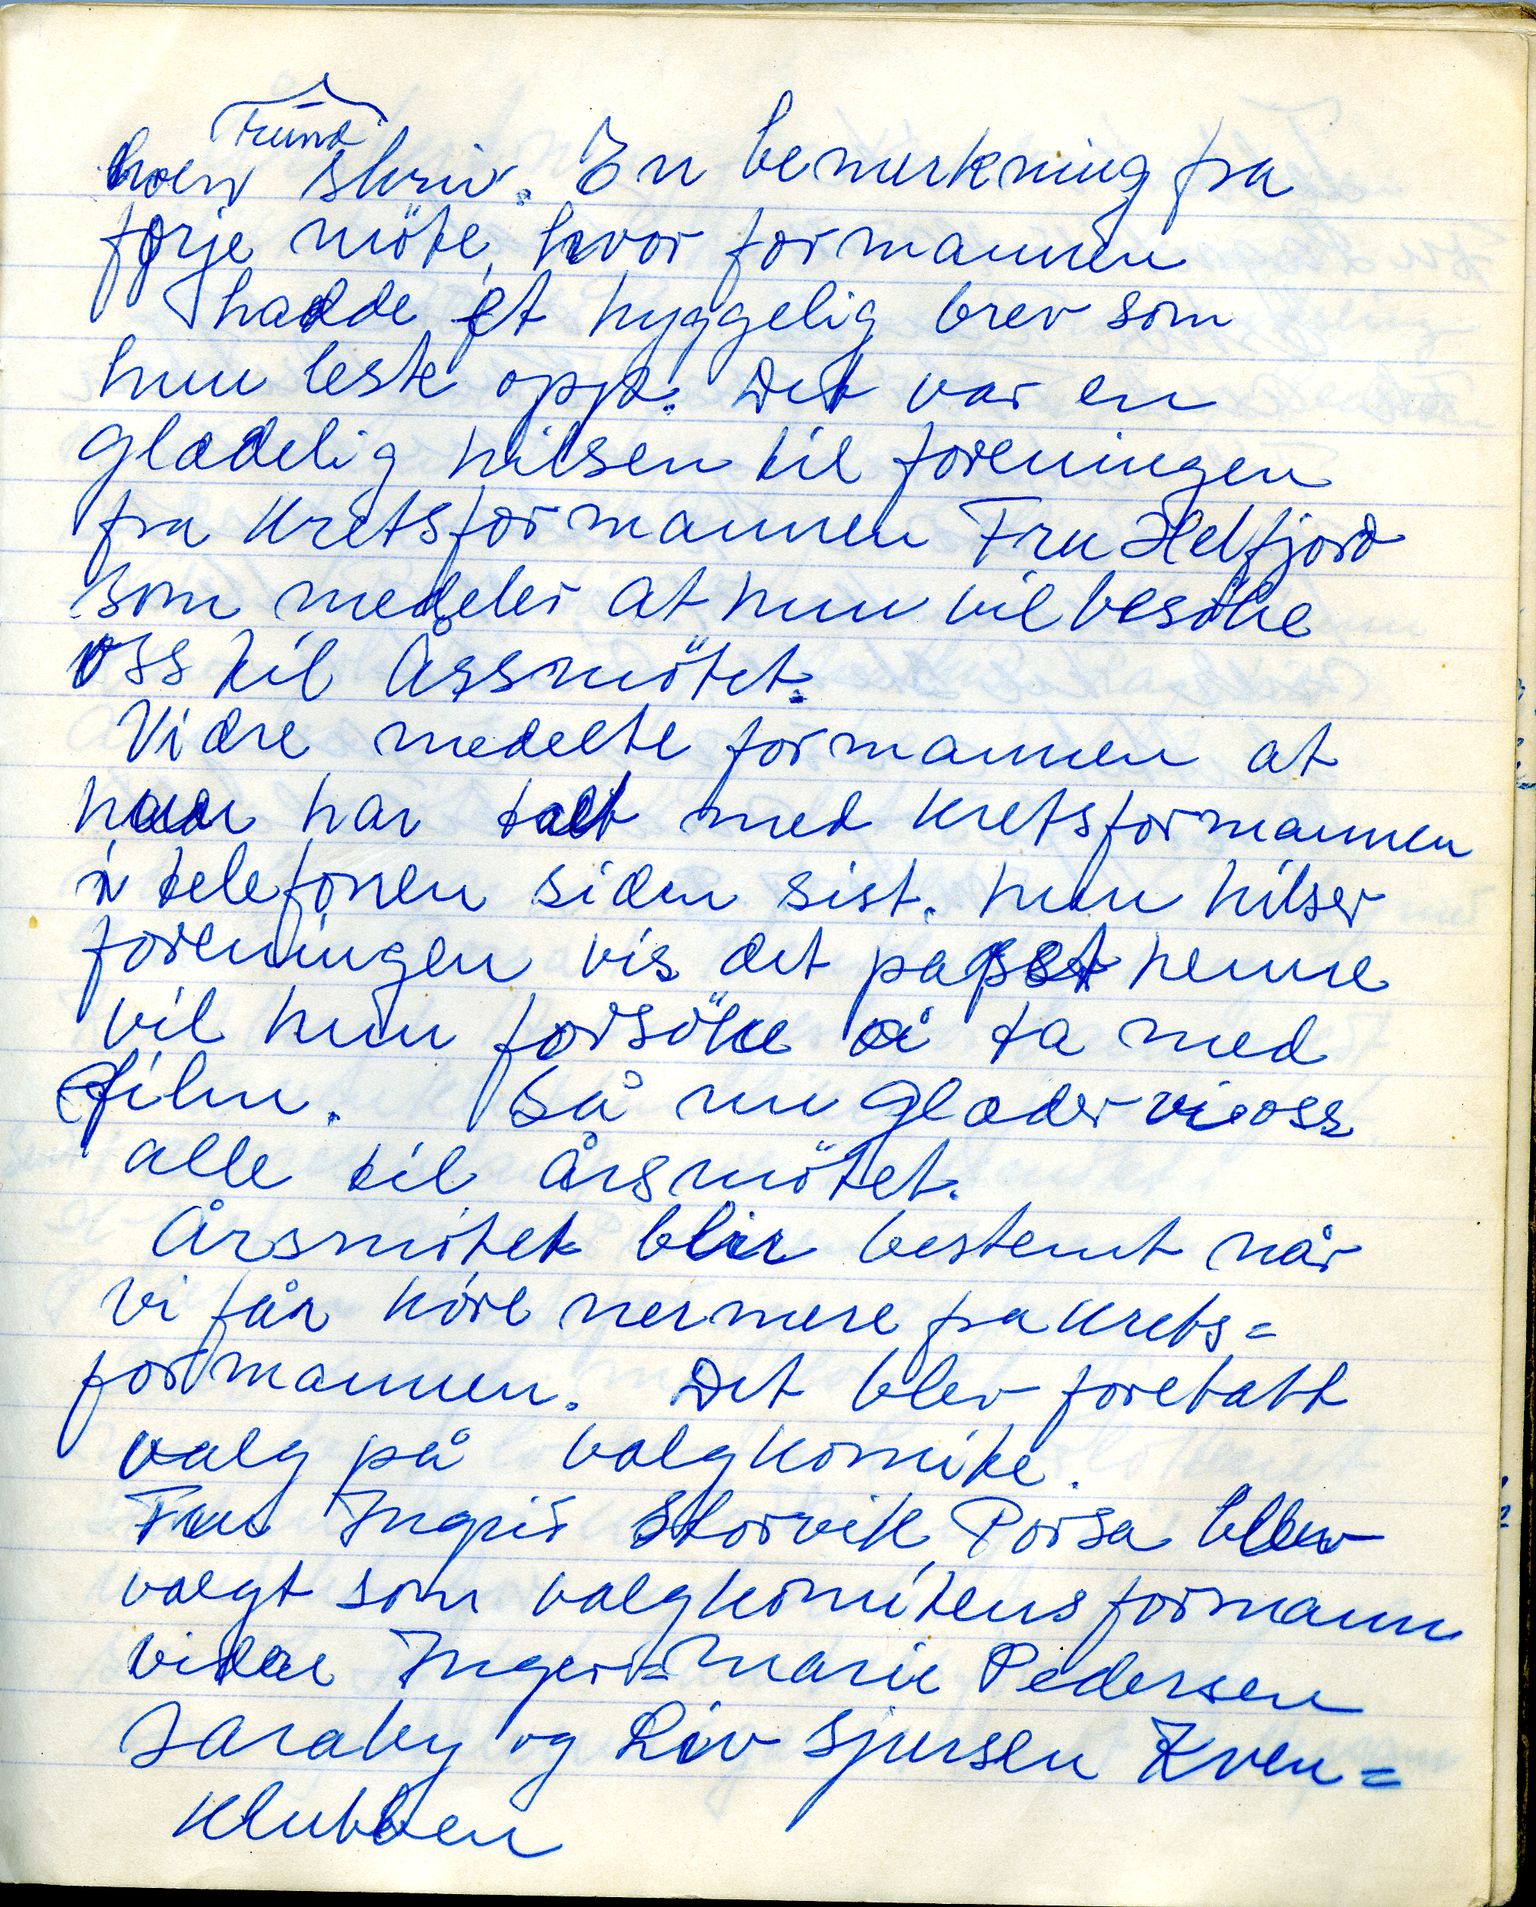 rund
hver skriv. En bemerkning fra
forje möte, hvor formannen
hadde et hyggelig brev som
hun leste opp. Det var en
gladelig hilsen til foreningen
fra Kretsformannen Fru Helfjord
som medeler at hun vil besöke
oss til Årssmötet.
Vidre medelte formannen at
hun har talt med Kretsformannen
i telefonen siden sist. hun hilser
foreningen vis det passet henne
vil hun forsöke å ta med
film. Så nu glæder vi oss
alle til årsmötet.
Årsmötet blir bestemt når
vi får höre nermere fra Krets=
formannen. Det blev foretatt
valg på valgkomite.
Fru Ingrid Storvik Porsa blev
valgt som valgkomitens formann
vidre Inger=Marie Pedersen
Saraby og Liv Sjursen Kven=
Klubben